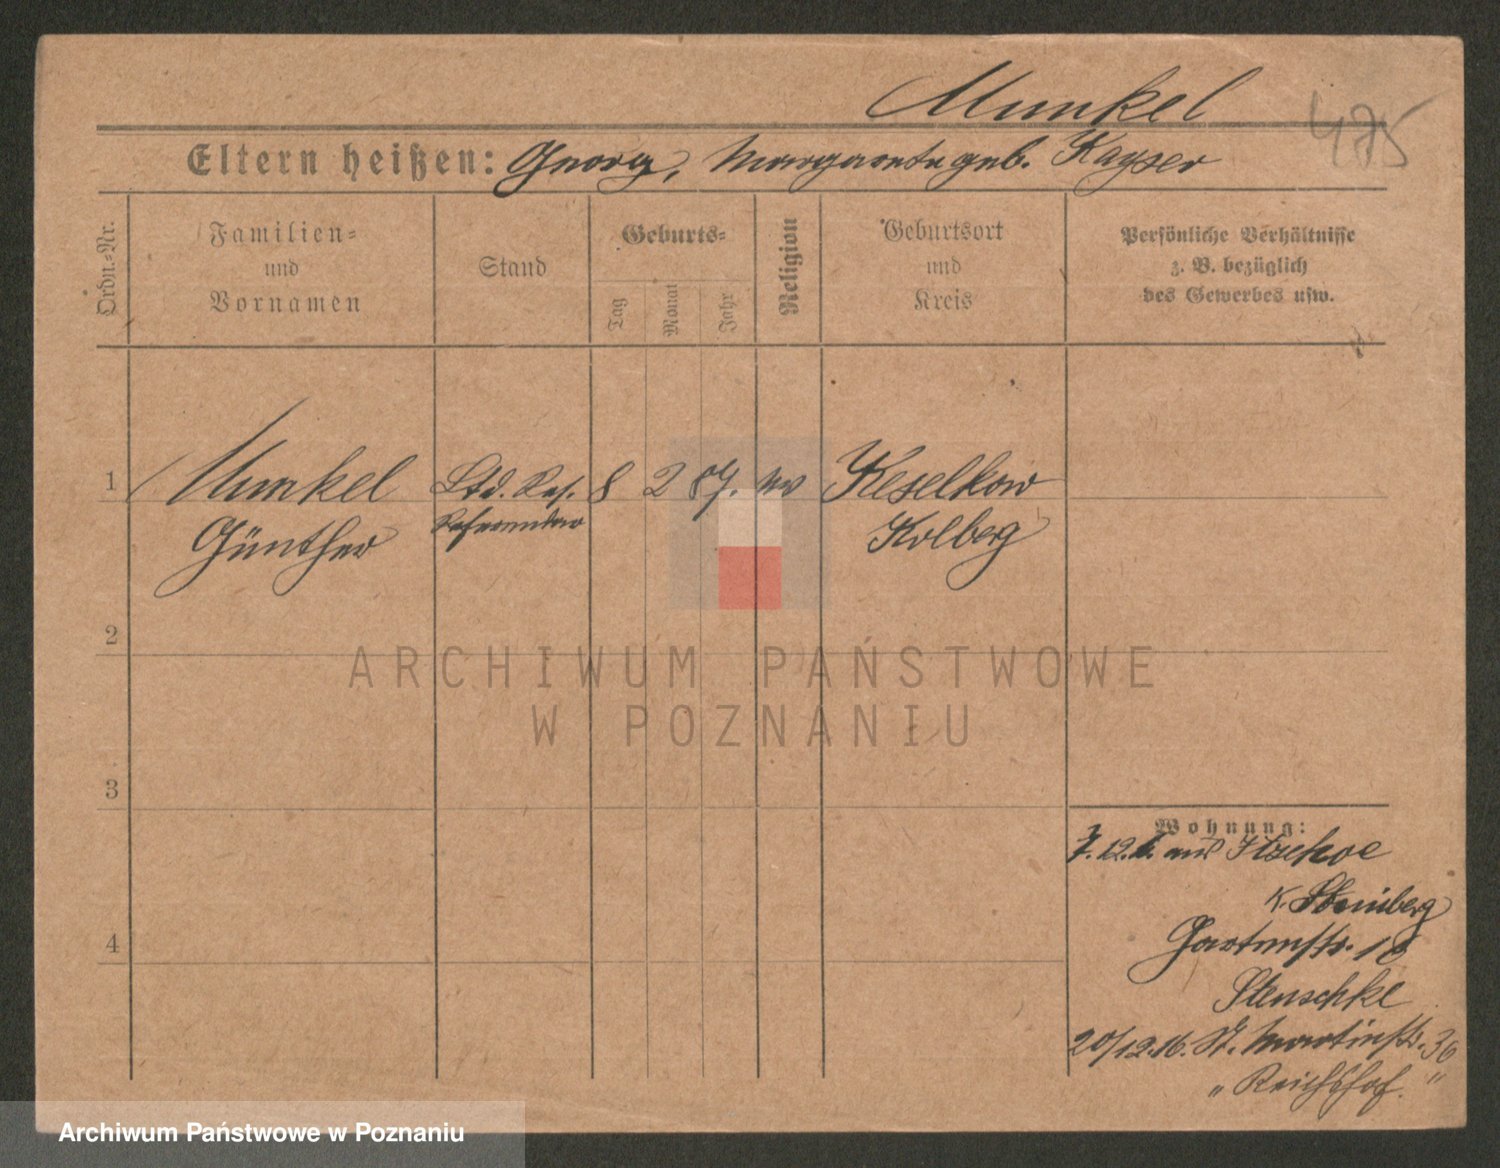 Munkel
475
Eltern heißen: Georg, Margarete geb. Kayser
Ordn.-Nr.
Familien-
und
Vornamen
Stand
Geburts-
Tag
Monat
Jahr
Religion
Geburtsort
und
Kreis
Persönliche Verhältnisse
z. B. bezüglich
des Gewerbes usw.
1 Munkel Ltd. Res. 8 2 87. ev Keselkow
Günther Referendar Kolberg
2
3
4
Wohnung:
7.12. aus Itzehoe
K.
Gartenstr.
Stenschke
20/12.16. St. Martinstr. 36
"Reichshof."
ARCHIWUM PAŃSTWOWE
W POZNANIU
Archiwum Państwowe w Poznaniu